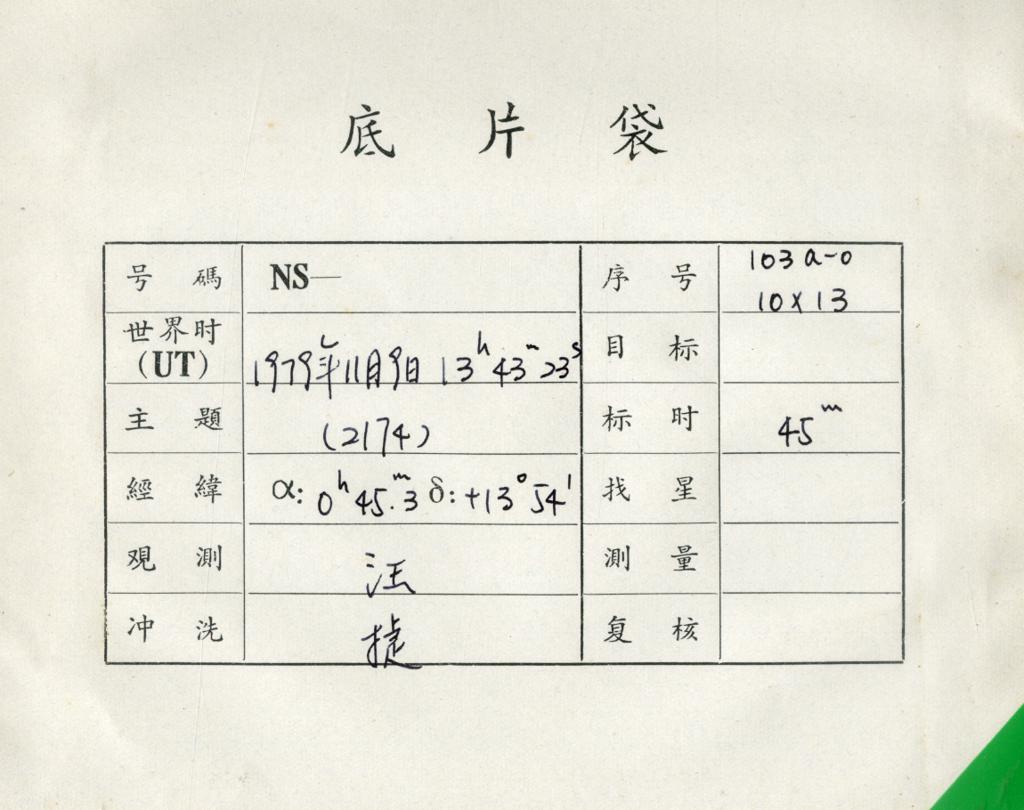 底 片 袋
号 碼 NS— 序 号 103a-o 10×13
世界时 (UT) 1979年11月9日 13h 43m 23s 目 标
主 題 (2174) 标 时 45m
經 緯 α: 0h 45m.3 δ: +13° 54' 找 星
观 測 汪 測 量
冲 洗 捷 复 核